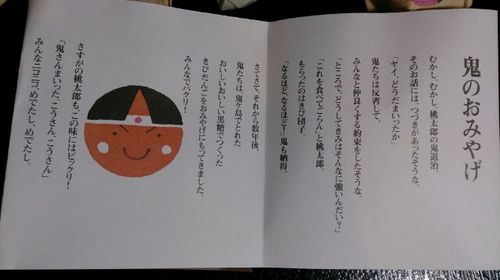 鬼のおみやげ
むかし、むかし、桃太郎の鬼退治。
そのお話には、つづきがあったそうな。
「ヤイ、どうだまいったか」
鬼たちは反省して、
みんなと仲良くする約束をしたそうな。
「ところで、どうしてきみはそんなに強いんだい?」
「これを食べてごらん」と桃太郎。
もらったのはきび団子。
「なるほど、なるほど!」鬼も納得。
さてさて、それから数年後、
鬼たちは、鬼ヶ島でとれた
おいしいおいしい黒糖でつくった
きびだんごをおみやげにもってきました。
みんなでパクリ!
さすがの桃太郎も、この味にはビックリ!
「鬼さんまいった、こうさん、こうさん」
みんなニコニコ、めでたし、めでたし。